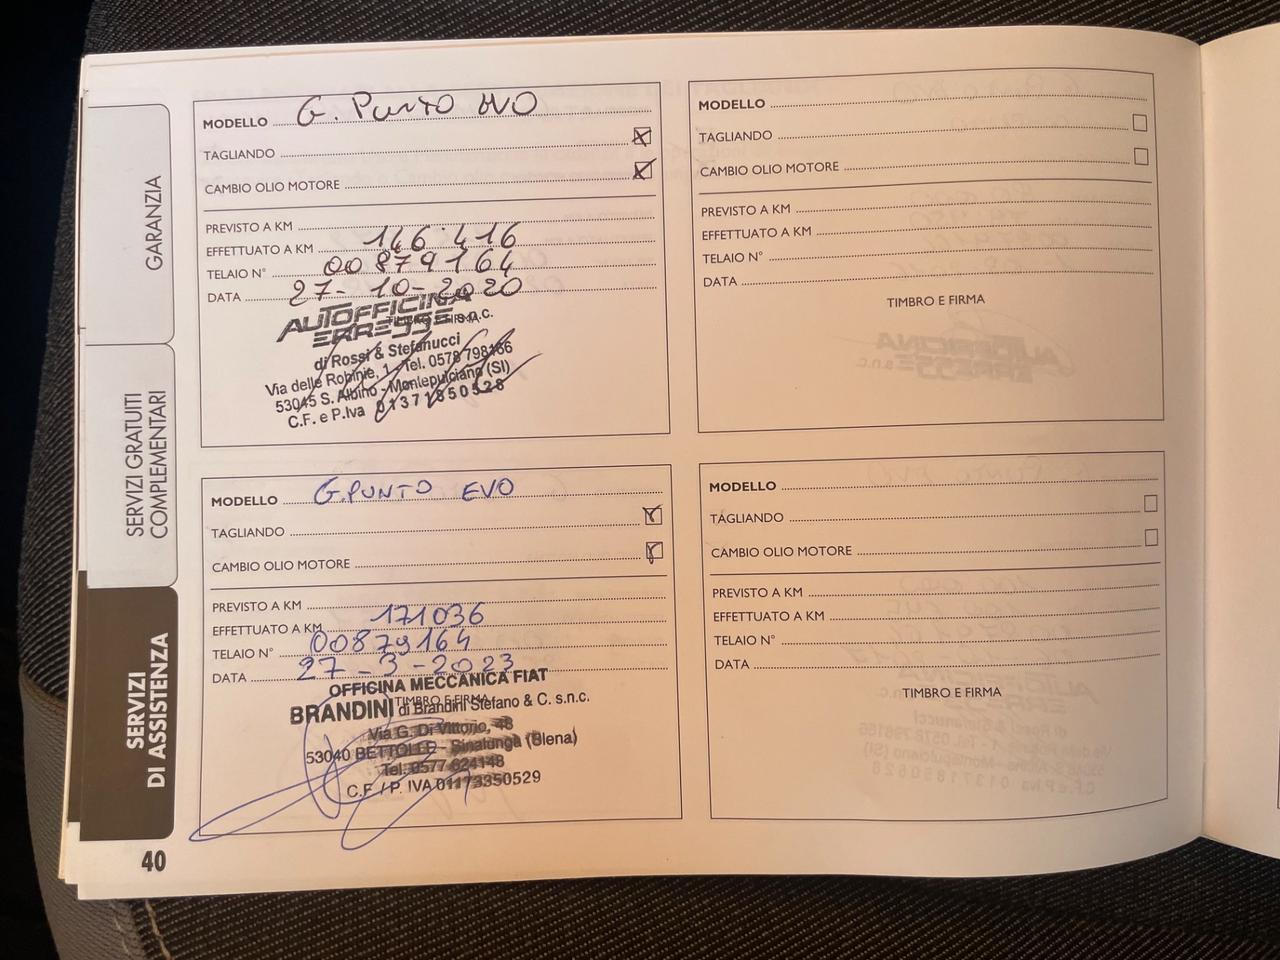 GARANZIA
SERVIZI GRATUITI
COMPLEMENTARI
SERVIZI
DI ASSISTENZA
40
MODELLO G. PUNTO EVO
TAGLIANDO
CAMBIO OLIO MOTORE
PREVISTO A KM
EFFETTUATO A KM 146.416
TELAIO N° 00879164
DATA 27-10-2020
TIMBRO E FIRMA
AUTOFFICINA
ERRESSE s.n.c.
di Rossi & Stefanucci
Via delle Robinie, 1 - Tel. 0578 798166
53045 S. Albino - Montepulciano (SI)
C.F. e P.Iva 01371850528
MODELLO
TAGLIANDO
CAMBIO OLIO MOTORE
PREVISTO A KM
EFFETTUATO A KM
TELAIO N°
DATA
TIMBRO E FIRMA
MODELLO G.PUNTO EVO
TAGLIANDO
CAMBIO OLIO MOTORE
PREVISTO A KM
EFFETTUATO A KM 171036
TELAIO N° 00879164
DATA 27-3-2023
TIMBRO E FIRMA
OFFICINA MECCANICA FIAT
BRANDINI di Brandini Stefano & C. s.n.c.
Via G. Di Vittorio, 48
53040 BETTOLLE - Sinalunga (Siena)
Tel. 0577 624148
C.F. / P. IVA 01173350529
MODELLO
TAGLIANDO
CAMBIO OLIO MOTORE
PREVISTO A KM
EFFETTUATO A KM
TELAIO N°
DATA
TIMBRO E FIRMA